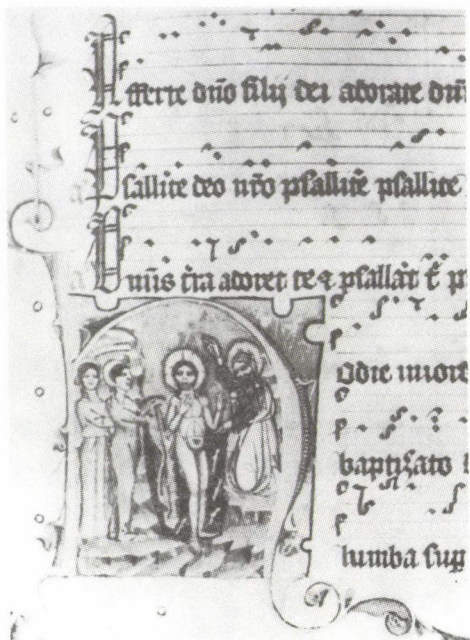 Afferte dño filij dei adorate dñm
Psallite deo nr̃o psallite psallite
Omnis t̃ra adoret te ⁊ psallat t̃ p
odie in iord
baptizato
lumba sup